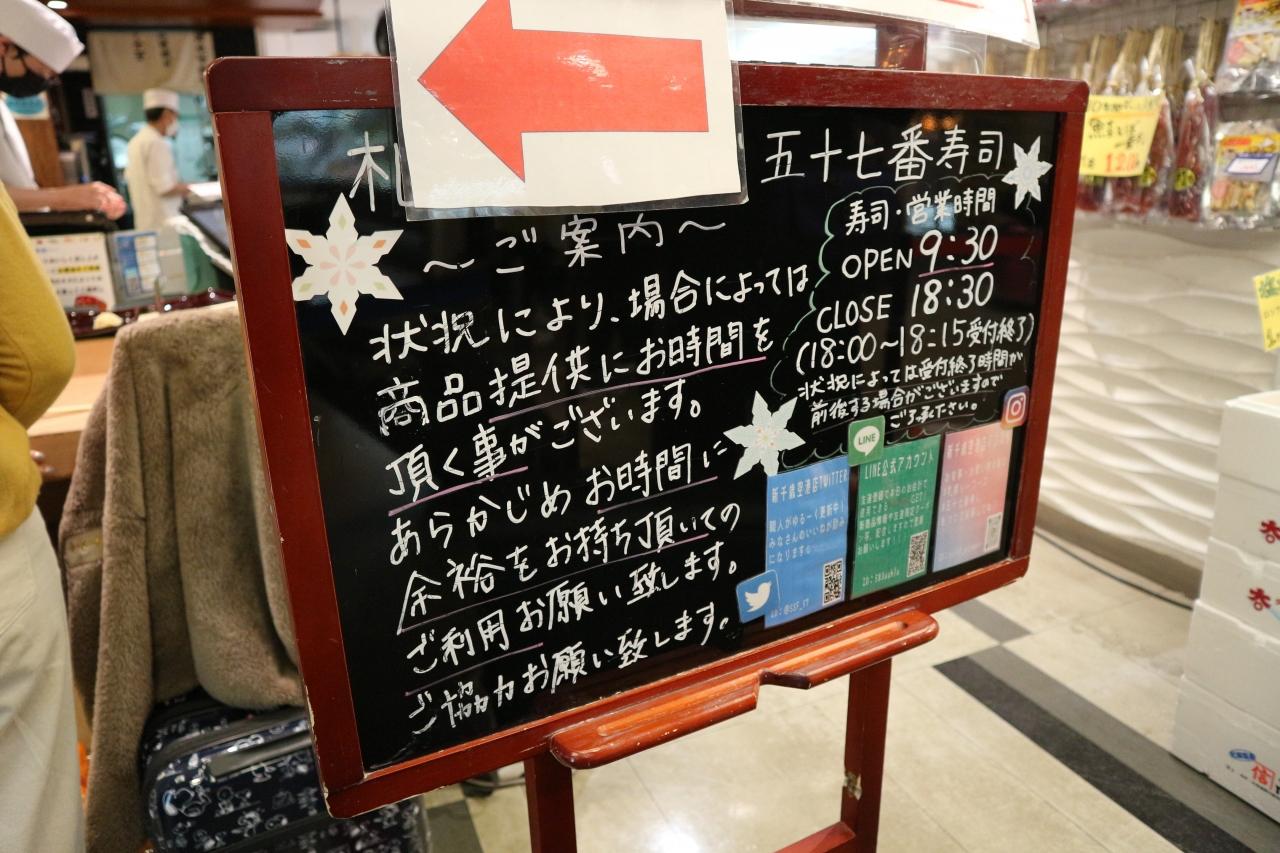 札
五十七番寿司
～ご案内～
状況により、場合によっては
商品提供にお時間を
頂く事がございます。
あらかじめお時間に
余裕をお持ち頂いての
ご利用お願い致します。
ご協力お願い致します。
寿司・営業時間
OPEN 9:30
CLOSE 18:30
(18:00～18:15受付終了)
状況によっては受付終了時間が
前後する場合がございますので
ご了承ください。
新千歳空港店TWITTER
職人がゆるーく更新中!
みなさんのいいねが励み
になります。
LINE
LINE公式アカウント
お願いします!!
新千歳空港店